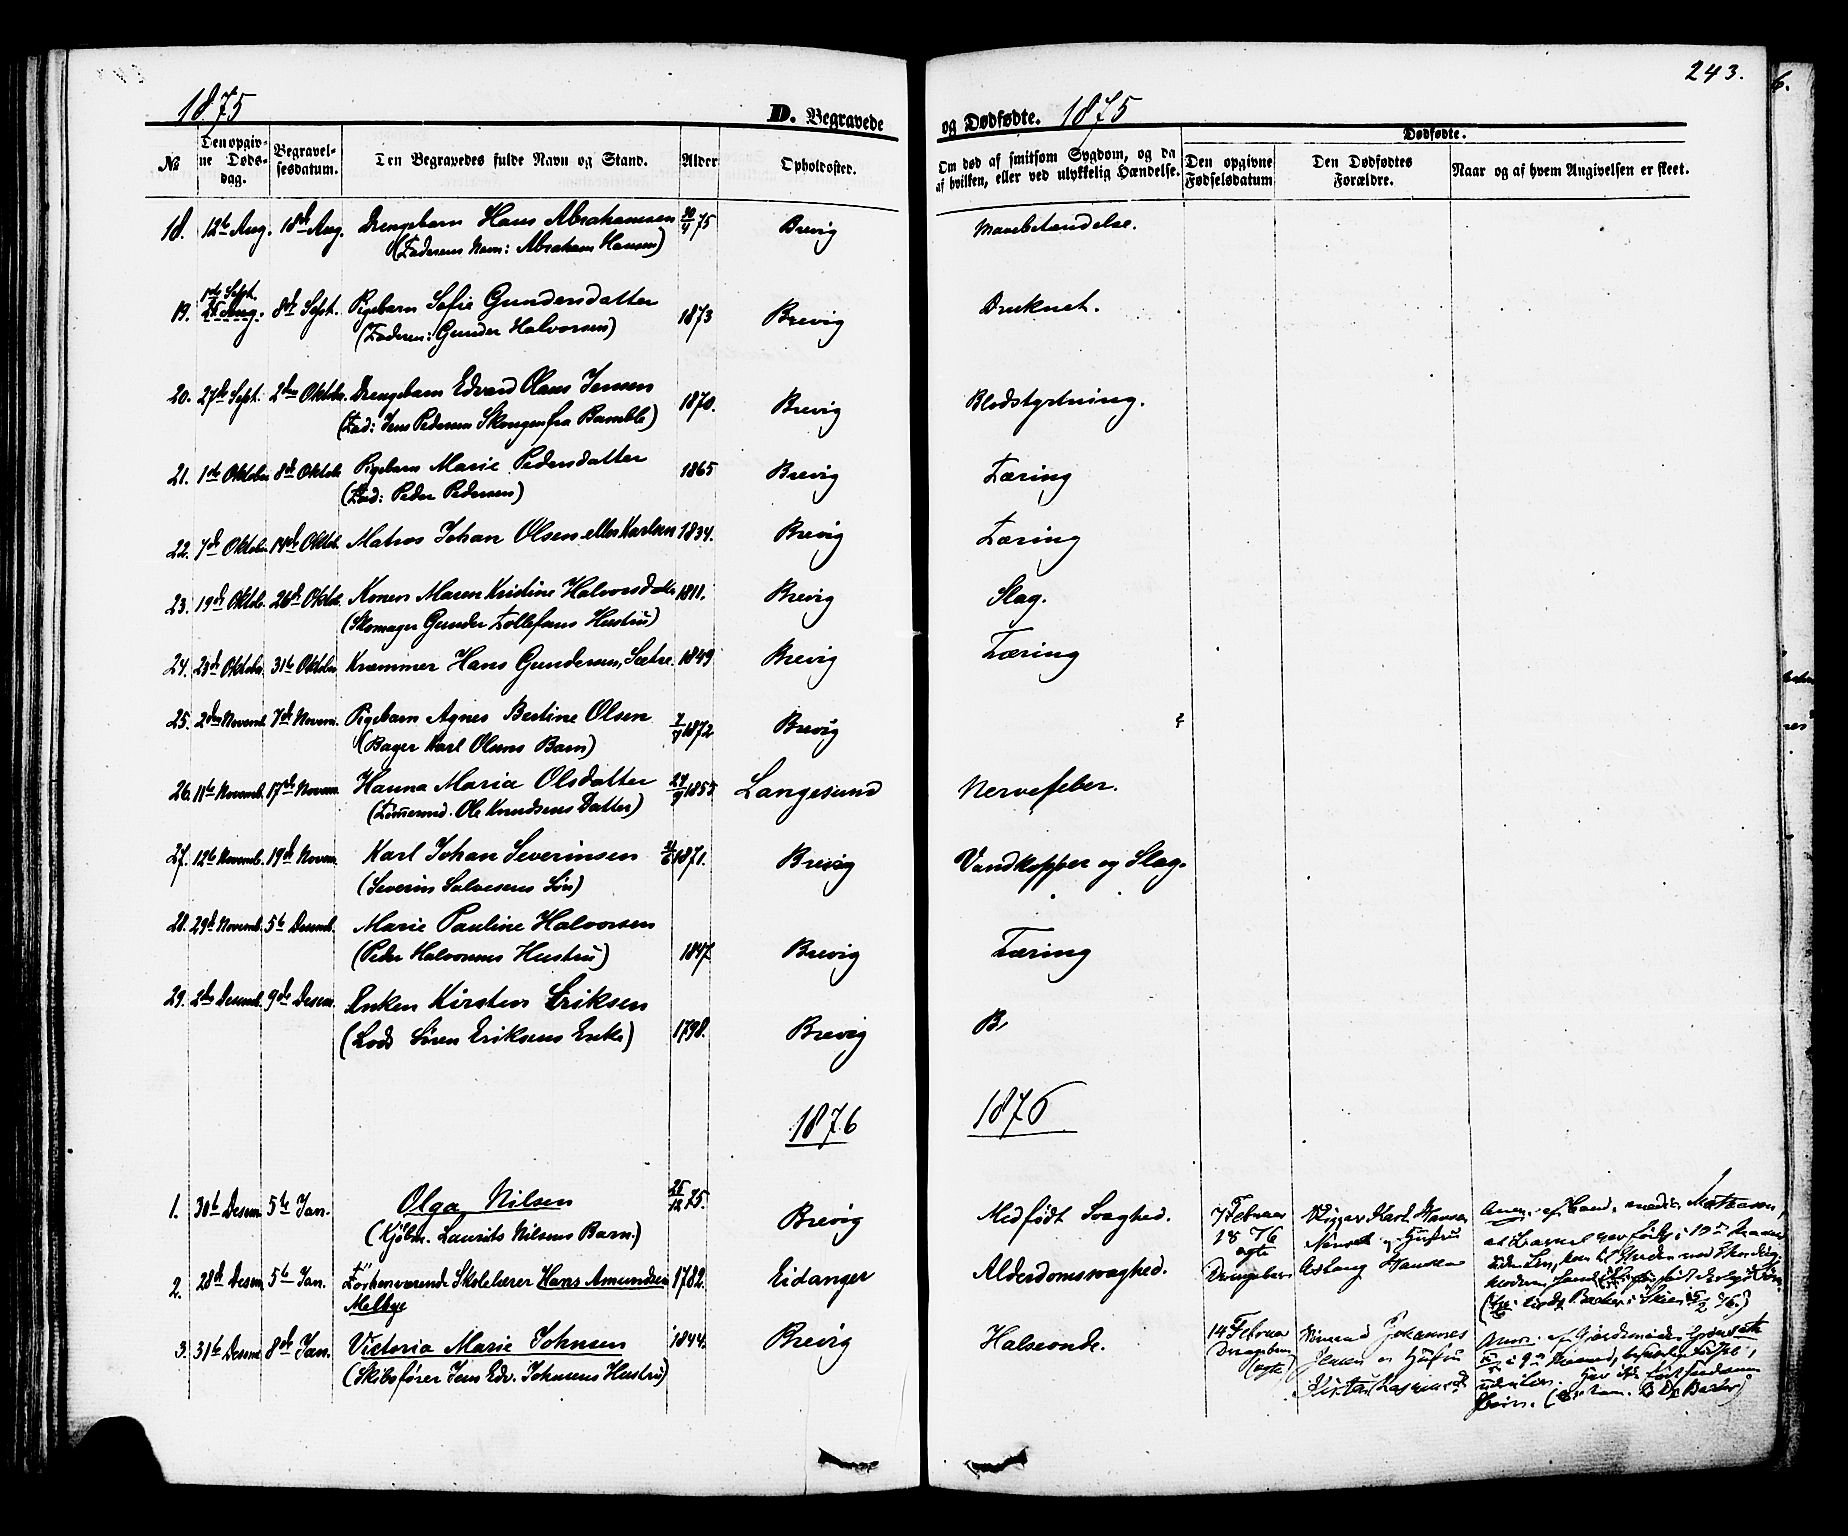 243.
1875 D. Begravede og Dødfødte. 1875
Dødfødte.
No. Den opgivne Dødsdag. Begravelsesdatum. Den Begravedes fulde Navn og Stand. Alder Opholdssted. Om død af smitsom Sygdom, og da af hvilken, eller ved ulykkelig Hændelse. Den opgivne Fødselsdatum Den Dødfødtes Forældre. Naar og af hvem Angivelsen er skeet.
18. 12te Aug. 18de Aug. Drengebarn Hans Abrahamsen 75 Brevig Mavebetændelse.
(Faderens Navn: Abraham Hansen)
1ste Sept.
19. 25 Aug. 8de Sept. Pigebarn Sofie Gundersdatter 1873 Brevig Druknet.
(Faderen: Gunder Halvorsen)
20. 27de Sept. 2den Oktober. Drengebarn Edvard Olaus Jensen 1870. Brevig Blodstyrtning.
(Fad: Jens Pedersen Skougen fra Bamble)
21. 1ste Oktober 8de Oktob. Pigebarn Marie Pedersdatter 1865 Brevig Tæring
(Fad: Peder Pedersen)
22. 7de Oktober 14de Oktob. Matros Johan Olsen eller Karlsen 1834. Brevig Tæring
23. 19de Oktob. 26de Oktob. Konen Maren Kristine Halvorsdatter 1811. Brevig Slag.
(Skomager Gunder Tollefsens Hustru)
24. 23de Oktober 31te Oktober Kræmmer Hans Gundersen, Sætre. 1849 Brevig Tæring
25. 2den Novemb. 7de Novem. Pigebarn Agnes Bertine Olsen 1872 Brevig ?
(Bager Karl Olsens Barn)
26. 11te Novemb. 17de Novem. Hanna Maria Olsdatter 24/9 1855 Langesund Nervefeber.
(Tømmermd. Ole Knudsens Datter)
27. 12te Novemb. 19de Novem. Karl Johan Severinsen 1871. Brevig Vandkopper og Slag.
(Severin Salvesens Søn)
28. 29de Novemb. 5te Desemb. Marie Pauline Halvorsen
(Peder Halvorsens Hustru) 1847. Brevig Tæring
29. 2den Desemb. 9de Desem. Enken Kirsten Eriksen
(Lods Sören Eriksens Enke) 1798. Brevig B,
1876 1876
1. 30te Desem. 5te Jan. Olga Nilsen 25/12 75. Brevig Medfödt Svaghed. 7 Februar 1876 ægte Drengebarn
(Kjöbm. Laurits Nilsens Barn.)
2. 28de Desem. 5te Jan. Forhenværende Skolelærer Hans Amundsen 1782. Eidanger Alderdomssvaghed.
Melbye
3. 31te Desem. 8de Jan. Victoria Marie Johnsen 1844. Brevig Halsvonde. 14 Februar Drengebarn (ægte) Johannes Jensen
(Skibsfører Jens Edv. Johnsens Hustru)